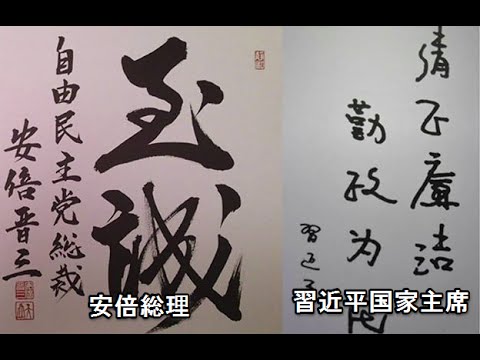 至誠
自由民主党総裁
安倍晋三
安倍総理
清正廉洁
勤政为民
習近平
習近平国家主席